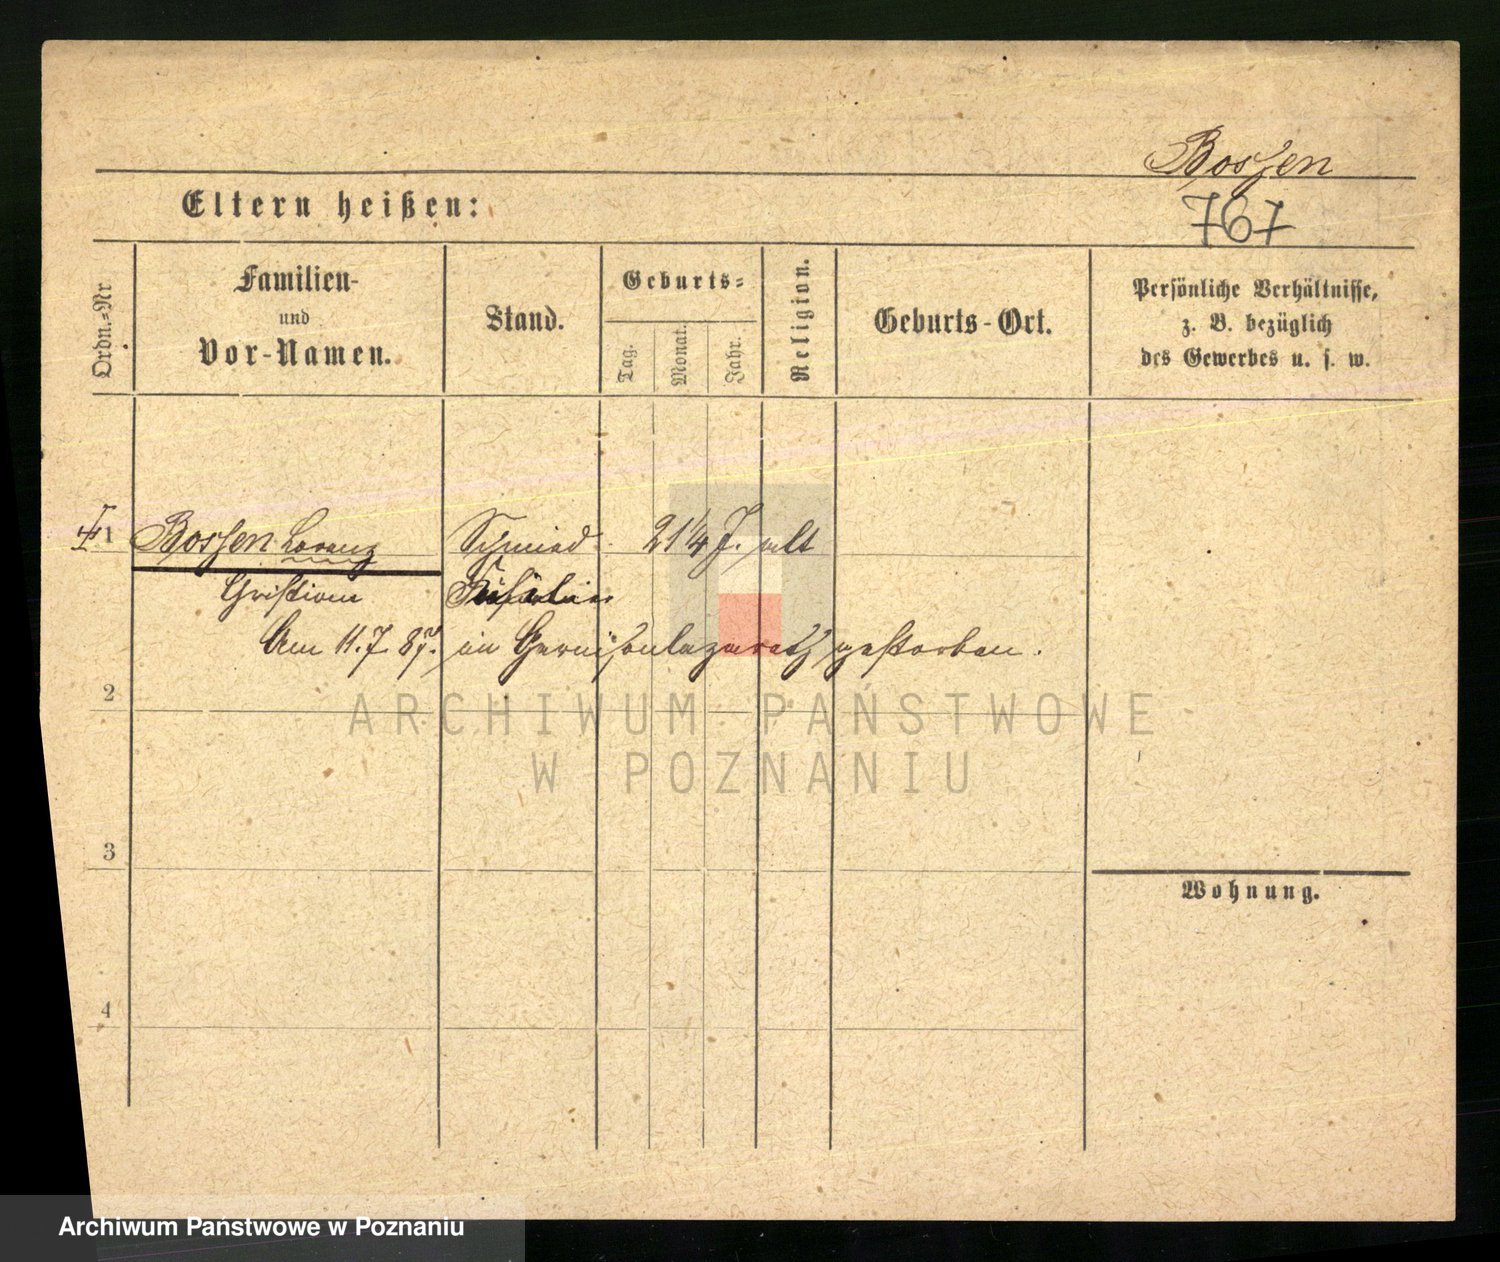 Bossen
Eltern heißen:
767
Ordn.-Nr
Familien-
und
Vor-Namen.
Stand.
Geburts-
Tag.
Monat.
Jahr.
Religion.
Geburts-Ort.
Persönliche Verhältnisse,
z. B. bezüglich
des Gewerbes u. s. w.
1 Bossen Lorenz Schmied 21 1/4 J. alt
Christian Füsilier
Am 11.7.87. im Garnisonlazareth gestorben.
2
ARCHIWUM PAŃSTWOWE
W POZNANIU
3
Wohnung.
4
Archiwum Państwowe w Poznaniu